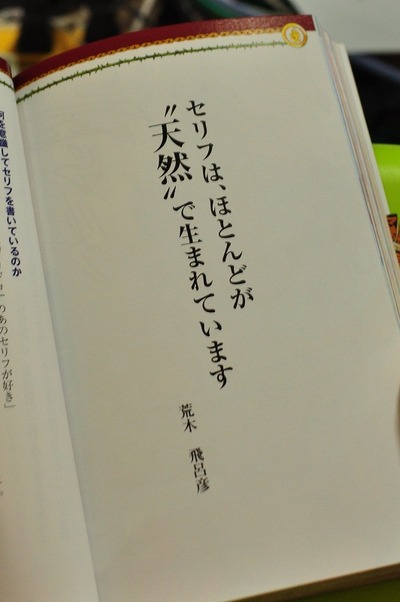 セリフは、ほとんどが
〝天然〟で生まれています
荒木 飛呂彦
何を意識してセリフを書いているのか
のあのセリフが好き」